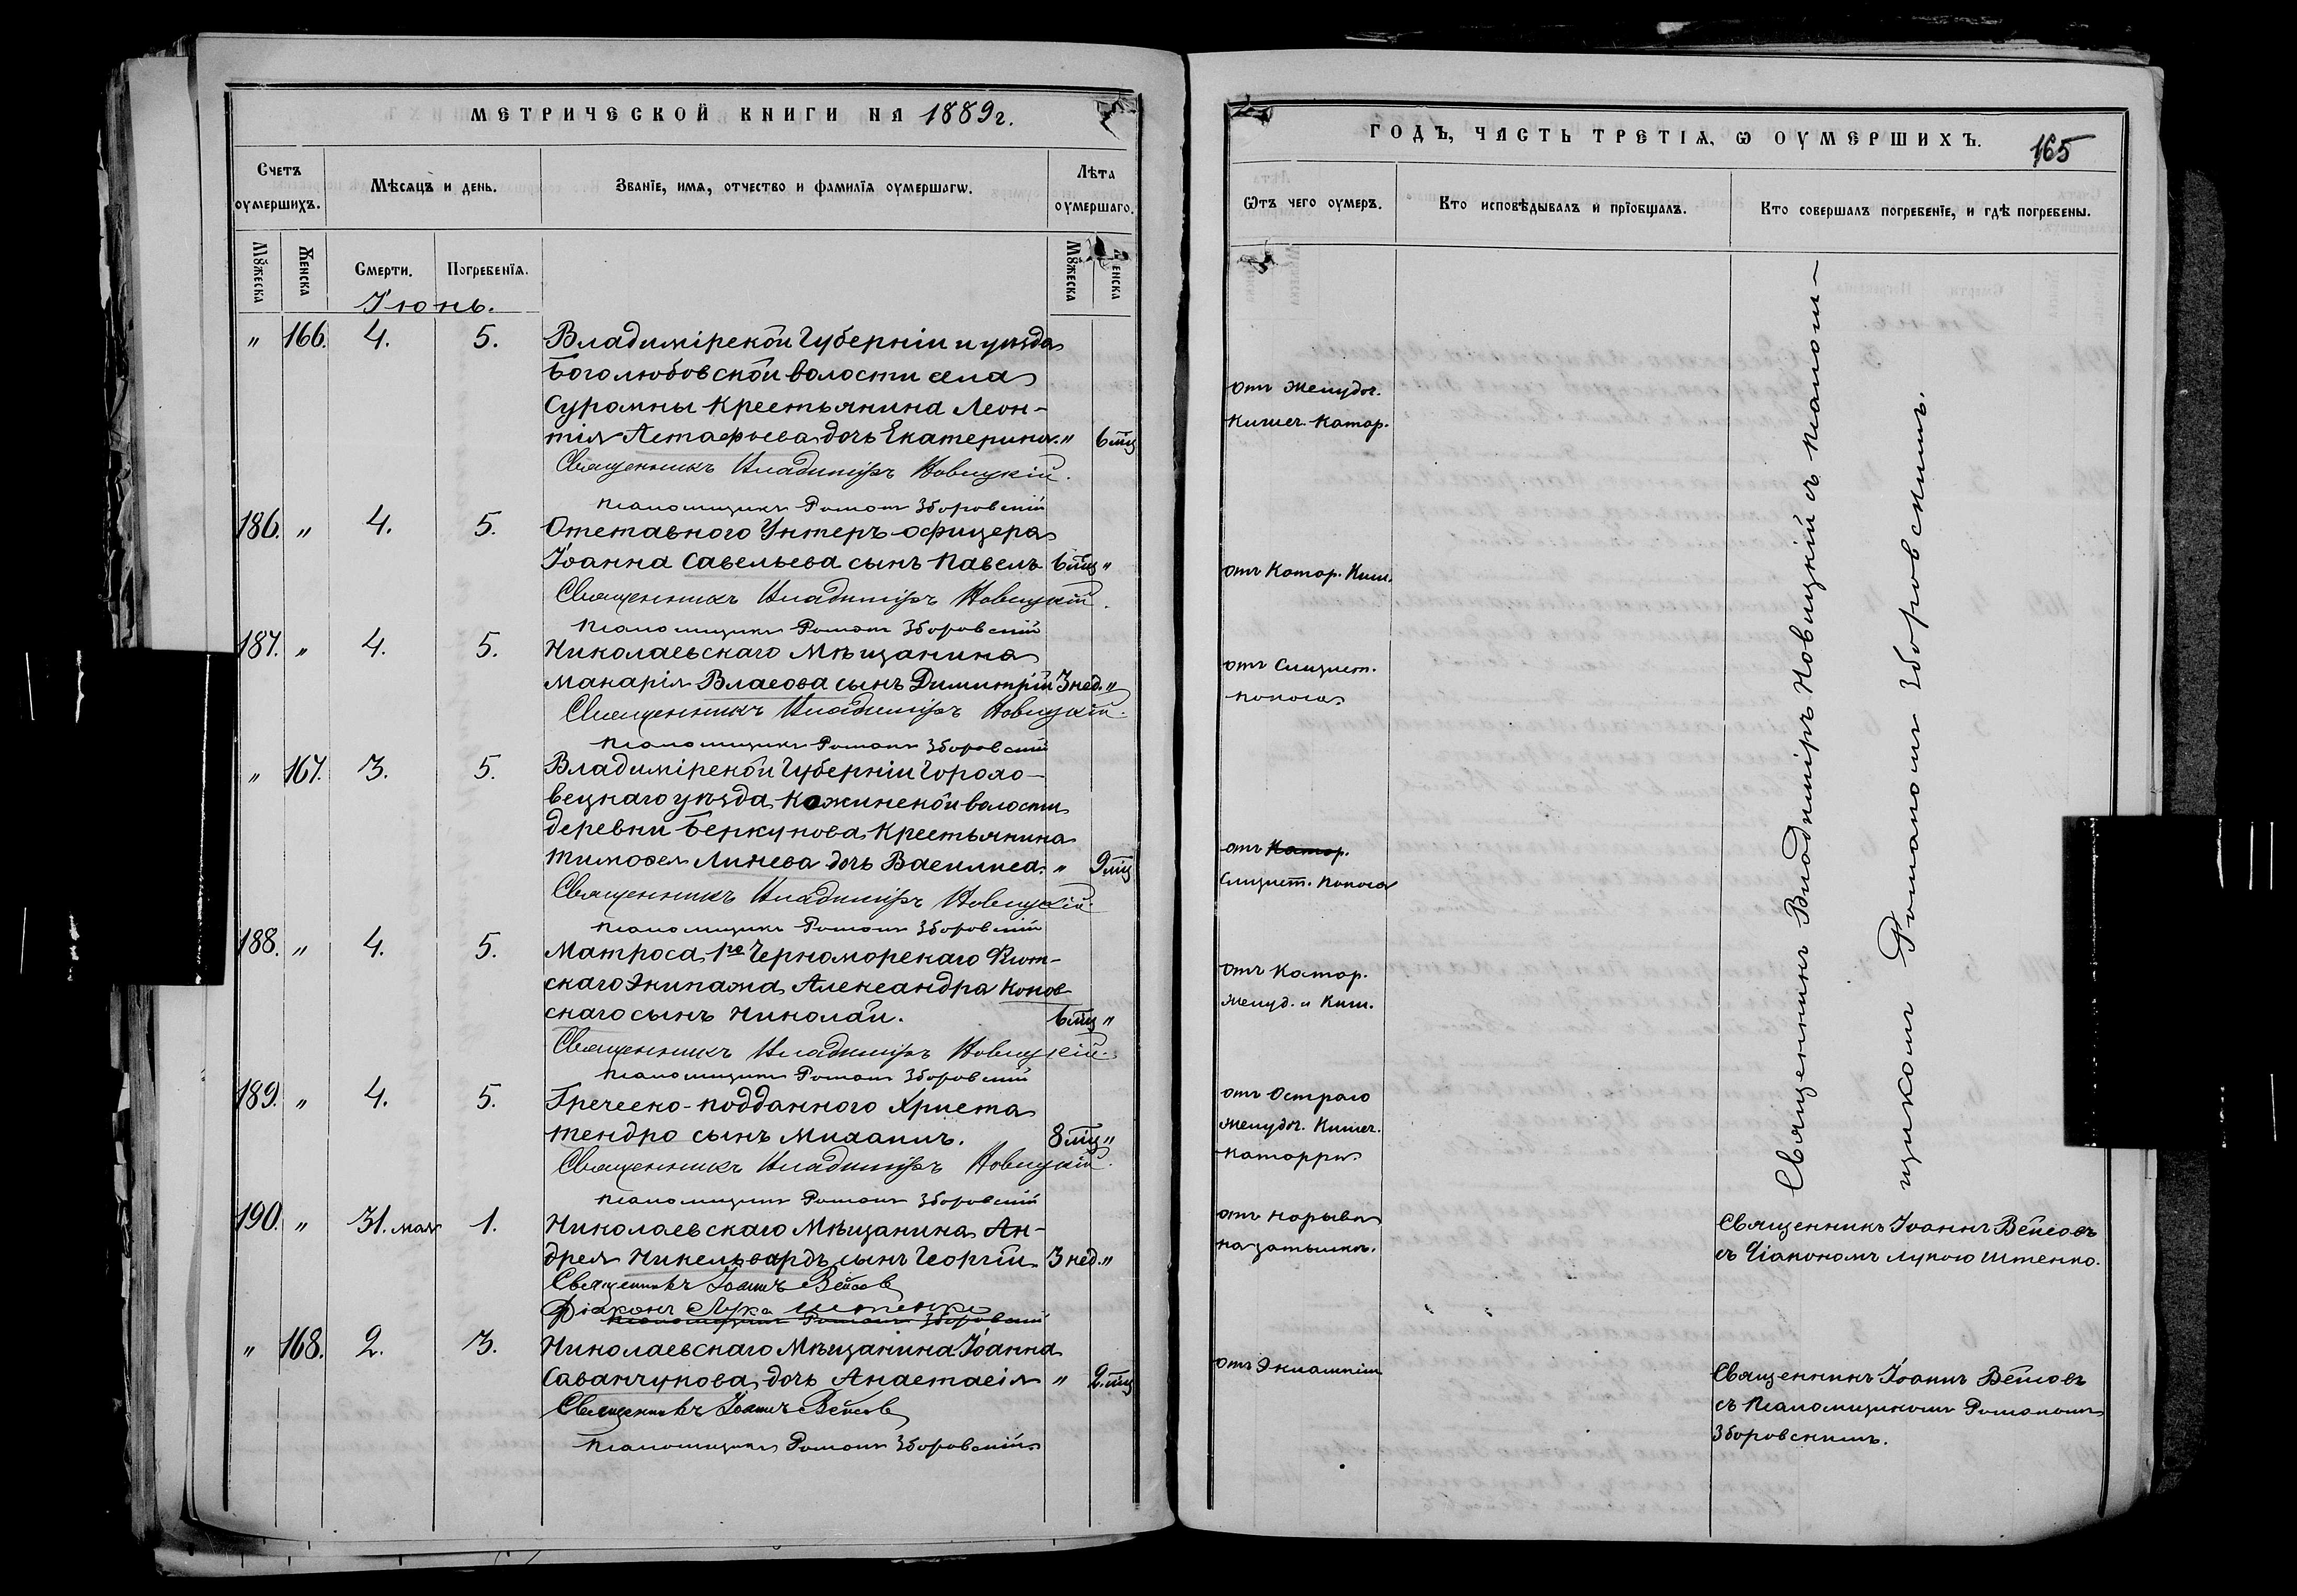 МЕТРИЧЕСКОЙ КНИГИ НА 1889 г.
Счетъ оумершихъ.
Мѣсяцъ и день.
Званїе, имя, отчество и фамилїя оумершагѡ.
Лѣта оумершаго.
Мꙋжеска
Женска
Смерти.
Погребенїя.
Мꙋжеска
Женска
Іюнь.
" 166. 4. 5. Владимірской Губерніи и уѣзда
Боголюбовской волости села
Суромны Крестьянина Леон-
тія Астафьева дочь Екатерина. " 6 мц
Священникъ Владиміръ Новицкій.
Псаломщикъ Романъ Зборовскій
186. " 4. 5. Отставного Унтеръ-офицера
Іоанна Савельева сынъ Павелъ 6 мц "
Священникъ Владиміръ Новицкій.
Псаломщикъ Романъ Зборовскій
187. " 4. 5. Николаевскаго Мѣщанина
Макарія Власова сынъ Димитрій 3 нед. "
Священникъ Владиміръ Новицкій.
Псаломщикъ Романъ Зборовскій
" 167. 3. 5. Владимірской Губерніи Горохо-
вецкаго уѣзда, Кожинской волости
деревни Беркунова Крестьянина
Тимофея Линева дочь Василиса. " 9 мц
Священникъ Владиміръ Новицкій.
Псаломщикъ Романъ Зборовскій
188. " 4. 5. Матроса 1го Черноморскаго Флот-
скаго Экипажа Александра Копов
скаго сынъ Николай. 6 мц "
Священникъ Владиміръ Новицкій.
Псаломщикъ Романъ Зборовскій
189. " 4. 5. Греческо-подданного Христа
Тендро сынъ Михаилъ. 8 мц "
Священникъ Владиміръ Новицкій.
Псаломщикъ Романъ Зборовскій
190. " 31. мая 1. Николаевскаго Мѣщанина Ан-
дрея Никельвардъ сынъ Георгій 3 нед. "
Священникъ Іоаннъ Вейсовъ
Діаконъ Лука Штенко
Псаломщикъ Романъ Зборовскій
" 168. 2. 3. Николаевскаго Мѣщанина Іоанна
Саванчукова, дочь Анастасія " 2 мц
Священникъ Іоаннъ Вейсовъ
Псаломщикъ Романъ Зборовскій
ГОДЪ, ЧАСТЬ ТРЕТІЯ, Ѡ ОУМЕРШИХЪ.
165
Ѿтъ чего оумеръ.
Кто исповѣдывалъ и прїобщалъ.
Кто совершалъ погребенїе, и гдѣ погребены.
отъ Желудоч.
Кишеч. Катар.
отъ Катар. Киш.
отъ Слизист.
поноса
отъ Катар.
Слизист. поноса
отъ Катар.
Желуд. и Киш.
отъ Остраго
Желудоч. Кишеч.
катарра
отъ нарыва
на затылкѣ.
отъ Эклампсіи
Священникъ Владиміръ Новицкій съ псалом-
щикомъ Романомъ Зборовскимъ.
Священникъ Іоаннъ Вейсовъ
съ Діакономъ Лукою Штенко.
Священникъ Іоаннъ Вейсовъ
съ Псаломщикомъ Романомъ
Зборовскимъ.